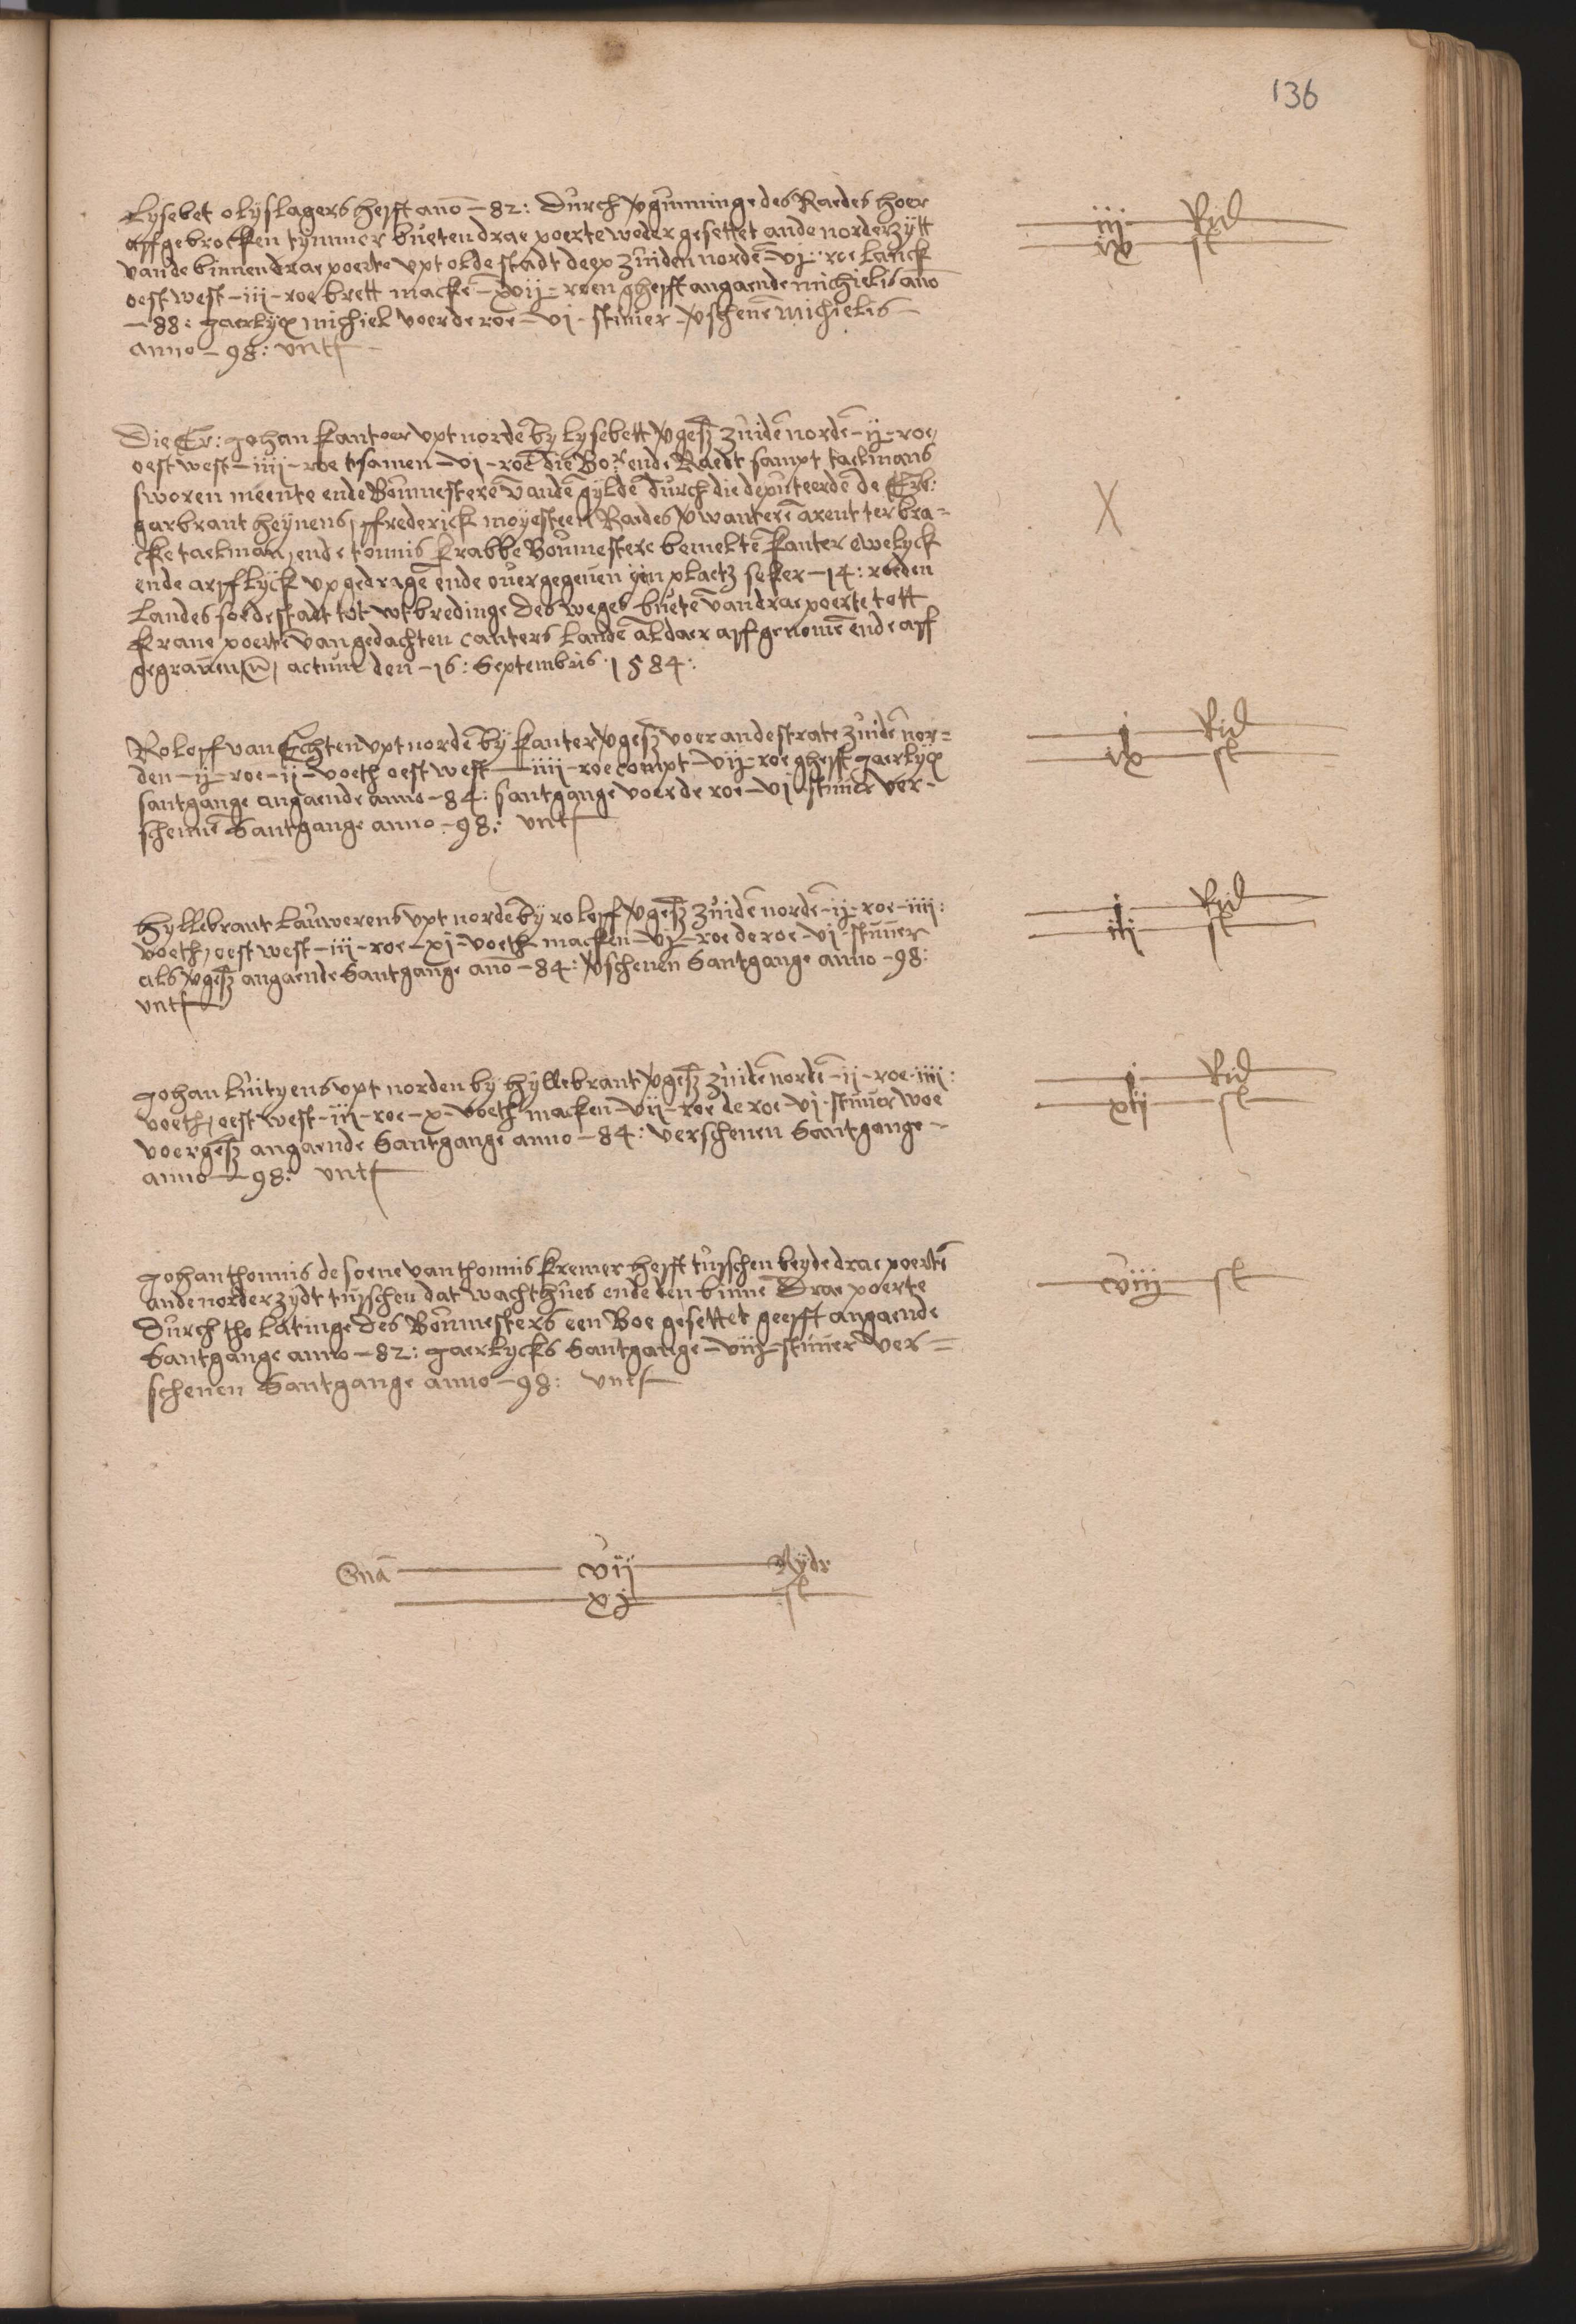 136
Lysebet olyslagers hefft ano - 82: durch vgunninge des Raedes hoer
affgebrocken tymmer bueten drae poerte weder gesettet ande norderzytt
vande binnen drae poerte upt olde stadt deep zuiden norden - vj - roe lanck
oest west - iij - roe brett macken - xvij - roen gheefft angaende michielis ano
- 88: jaerlyx michiel voer de roe - vj - stuver - vschenen Michielis -
anno - 98: untf
iij Rid
ix st
Die Er: Johan Kantoer upt norden by lysebett vgesz zuiden norden - ij - roe
oest west - iiij - roe tsamen - vi - roe die Bor ende Raedt sampt taelmans
sworen meente ende Boumesteren vanden gylden durch die deputeerden de Erb:
garbrant heynens, ffrederick moysteen Raedes vwanteren arent ter bra=
cke taelman, ende tonnis krabbe Boumestere bemelten Kanter ewelyck
ende arfflyck upgedragen ende overgegeven yn plaetz seker - 14: roeden
Landes so de stadt tot utbredinge des weges bueten van drae poerte tott
krane poerten van gedachten canters lande aldaer affgenomen ende aff
gegraven, actum den - 16: Septembris 1584:
X
Roloff van Echten upt norden by Kanter vgesz voer ande strate zuiden nor=
den - ij - roe - ij - voeth oest west - iiij - roe compt - vij - roe gheefft jaerlyx
santgange angaende anno - 84: santgange voer de roe - vj - stuver ver-
schennen Santgange anno - 98: untf
j Rid
ix st
Hyllebrant lauwerens upt norden by roloff vgesz zuiden norden - ij - roe - iiij:
voeth, oest west - iij - roe - xj - voeth macken - vj - roe de roe - vj - stuver
als vgesz angaende Santgange ano - 84: vschenen Santgange anno - 98:
untf
j Rid
iij st
Johan luityens upt norden by hyllebrant vgesz zuiden norden - ij - roe - iiij:
voeth, oest west - iij - roe - x - voeth macken - vij - roe de roe - vj - stuver woe
voergesz angaende Santgange anno - 84: verschenen Santgange -
anno - 98: untf
j Rid
xij st
Johan thonnis de soene van thonnis kremer hefft tusschen beyde drae poerten
ande norderzydt tusschen dat wachthues ende den binnen Drae poerte
durch tho latinge des Boumesters een Boe gesettet geefft angaende
Santgange anno - 82: jaerlycks Santgange - viij - stuver ver=
schenen Santgange anno - 98: untf
viij st
Sma vij Rydr
xj st